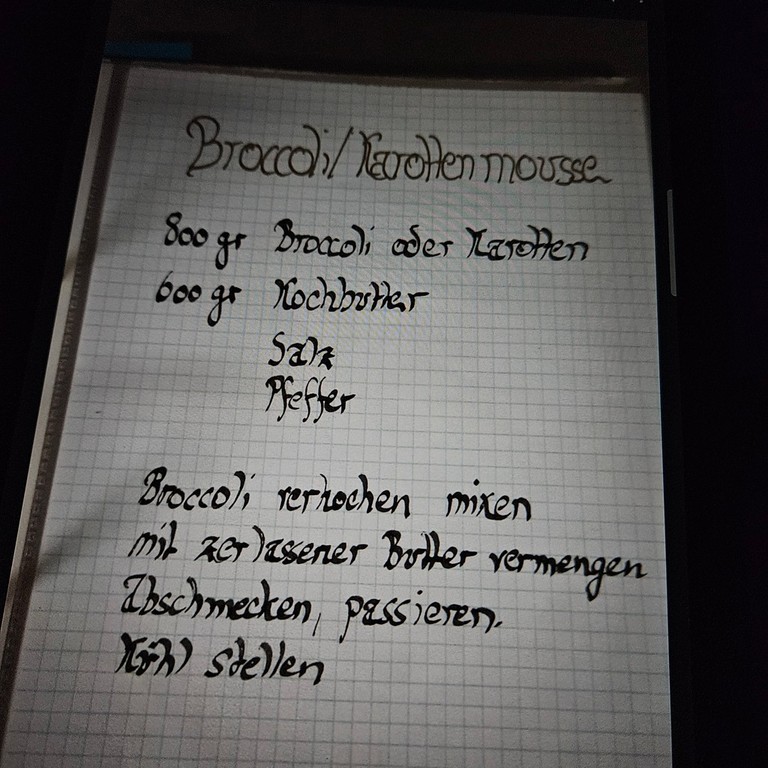 Broccoli/Karottenmousse
800 gr Broccoli oder Karotten
600 gr Kochbutter
Salz
Pfeffer
Broccoli verkochen mixen
mit zerlassener Butter vermengen
Abschmecken, passieren.
Kühl stellen